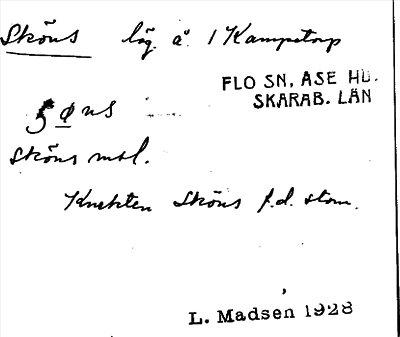 Sköns låg å 1 Kampetorp
FLO SN, ÅSE HD.
SKARAB. LÄN
ʂøns
Sköns msl.
Knekten Sköns f.d. stom.
L. Madsen 1928